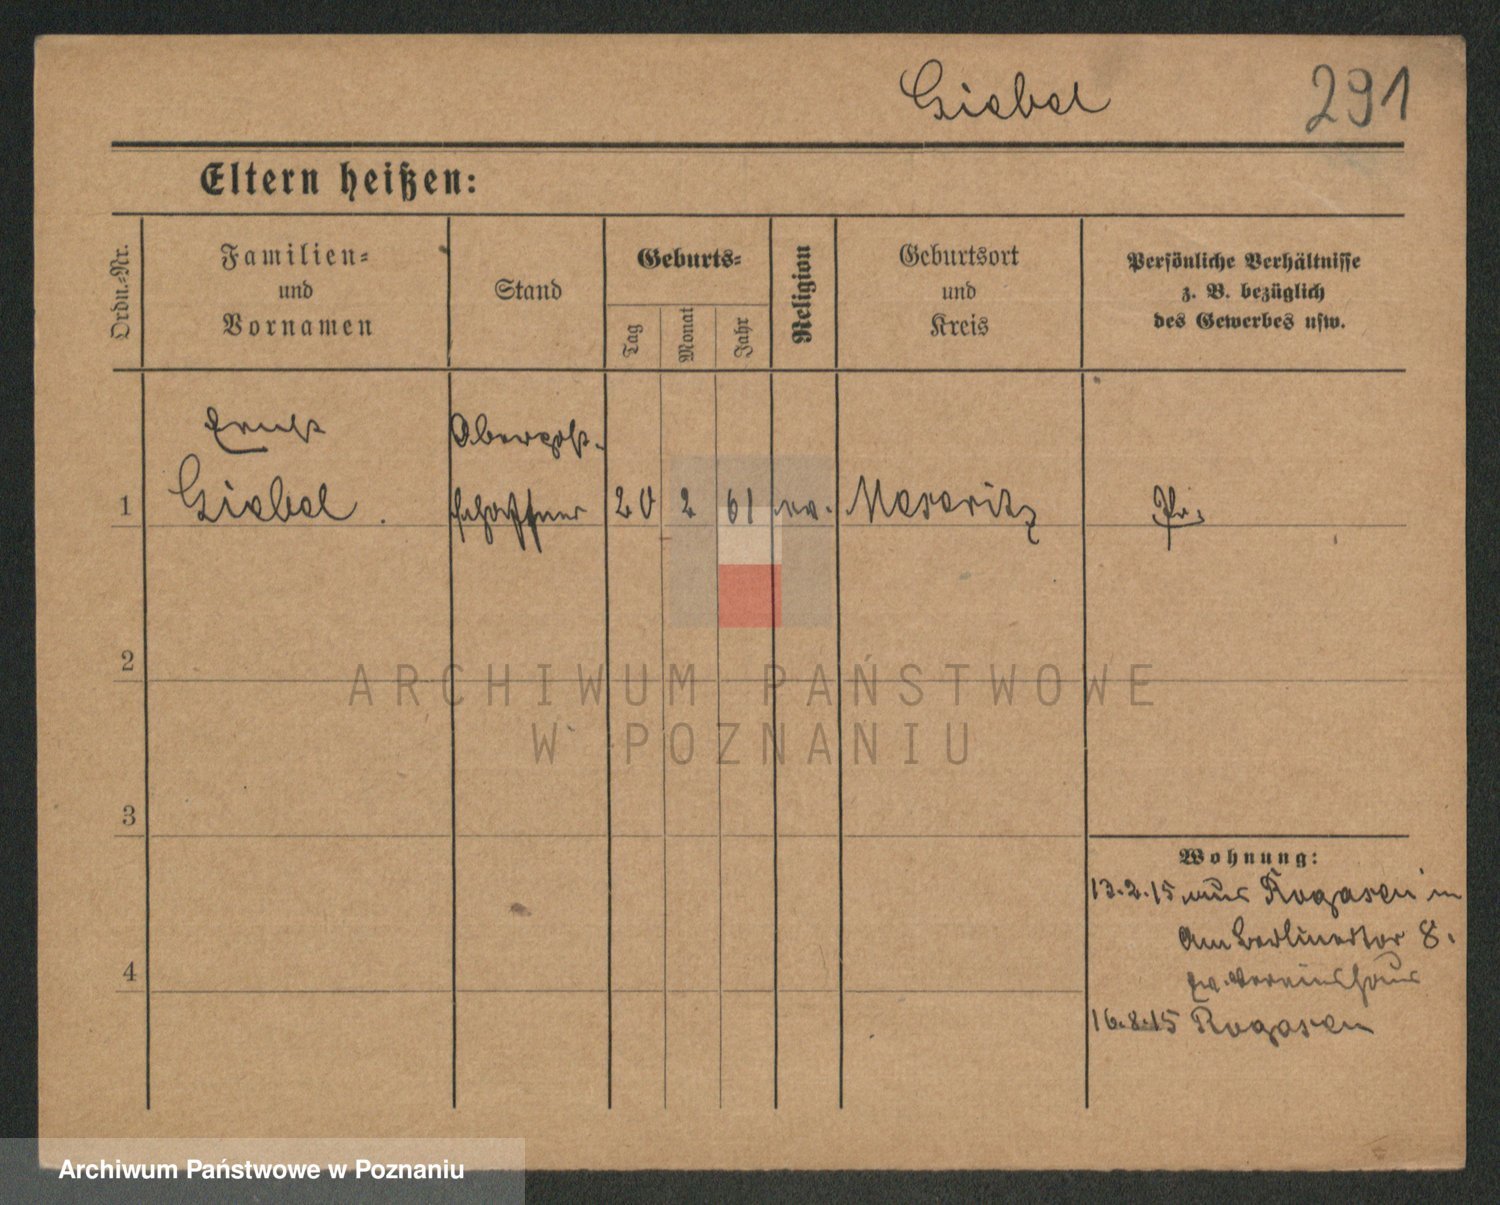 Giebel 291
Eltern heißen:
Ordn.-Nr.
Familien-
und
Vornamen
Stand
Geburts-
Tag
Monat
Jahr
Religion
Geburtsort
und
Kreis
Persönliche Verhältnisse
z. B. bezüglich
des Gewerbes usw.
Ernst Oberpost-
1 Giebel. schaffner 20 2 61 ev. Meseritz Pr.
2
3
4
Wohnung:
13.2.15 aus Rogasen in
Am Berlinertor 8.
Ev. Vereinshaus
16.8.15 Rogasen
ARCHIWUM PAŃSTWOWE
W POZNANIU
Archiwum Państwowe w Poznaniu